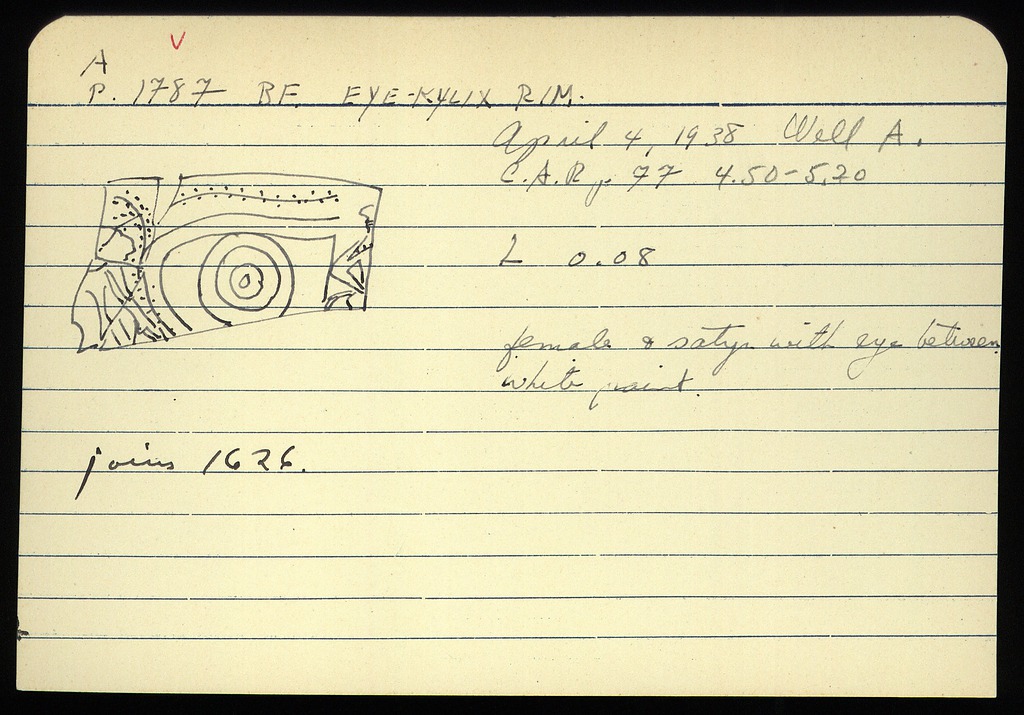 A
P. 1787 BF. EYE-KYLIX RIM.
April 4, 1938 Well A.
C.A.R p. 77 4.50-5.20
L 0.08
female & satyr with eye between
white paint.
joins 1626.